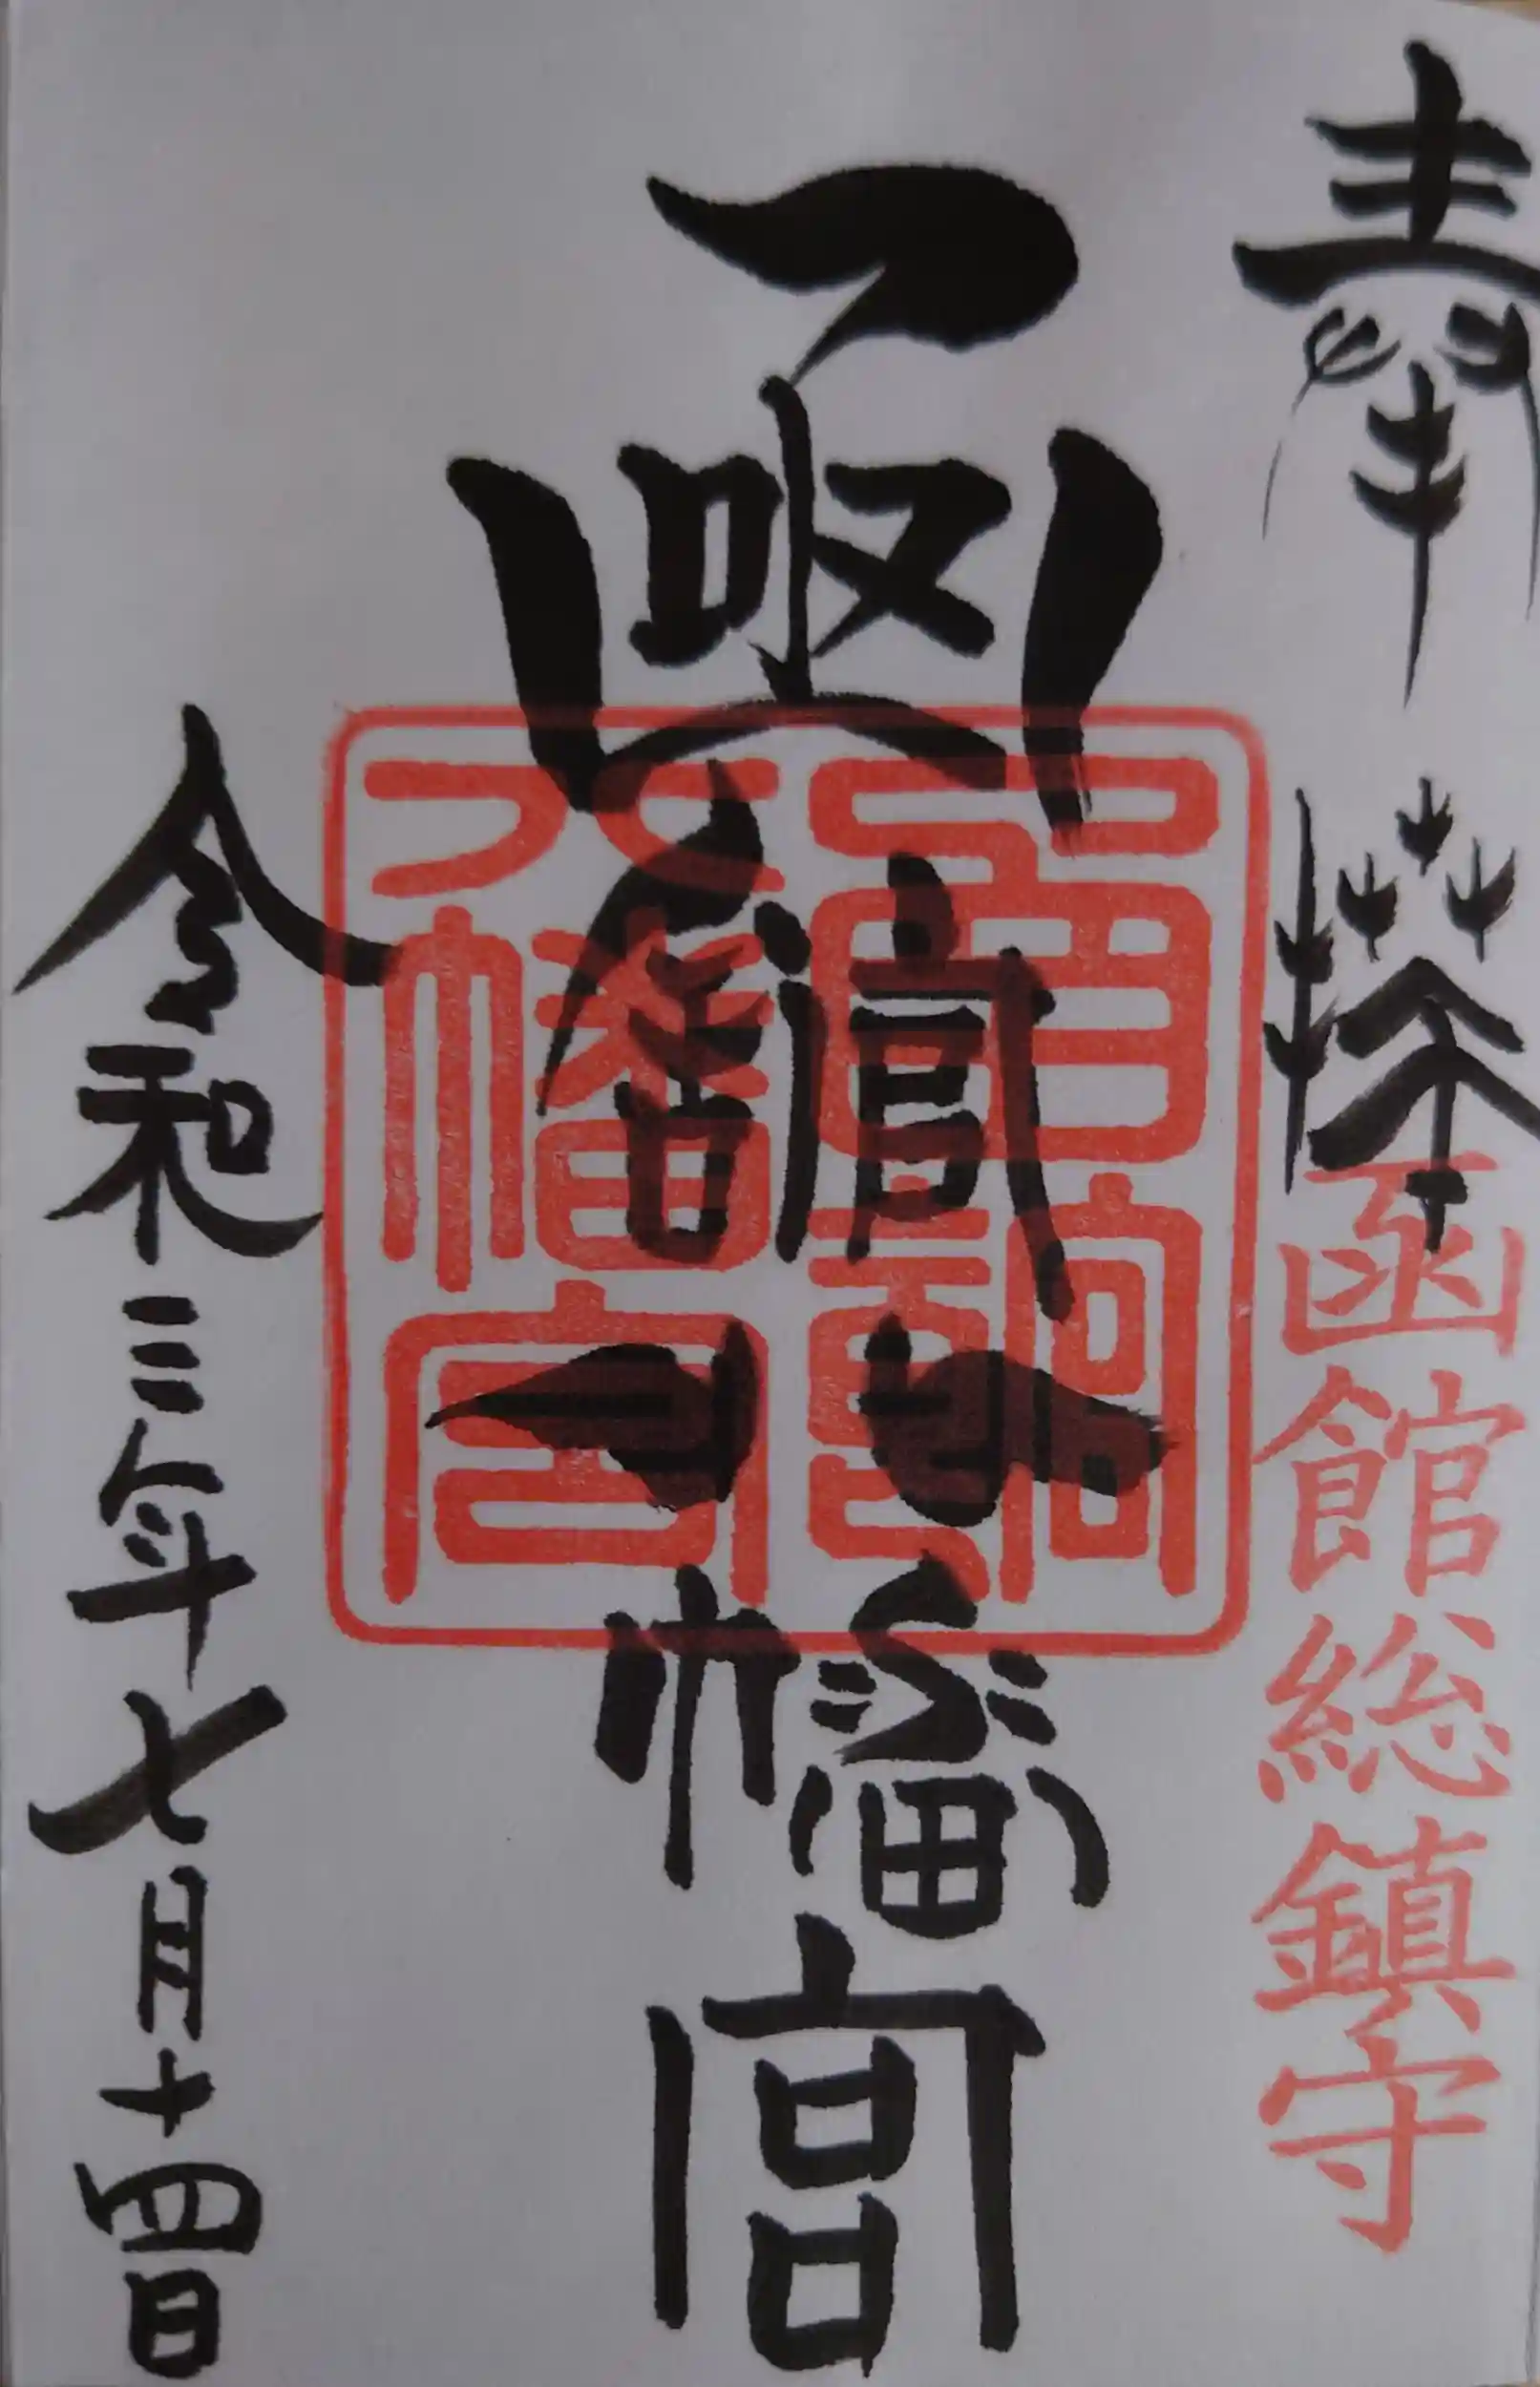 奉拝
函館総鎮守
函館八幡宮
国幣中社
八幡宮
令和三年七月十四日